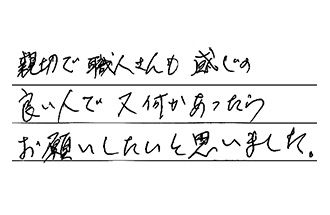 親切で職人さんも感じの
良い人で又何かあったら
お願いしたいと思いました。